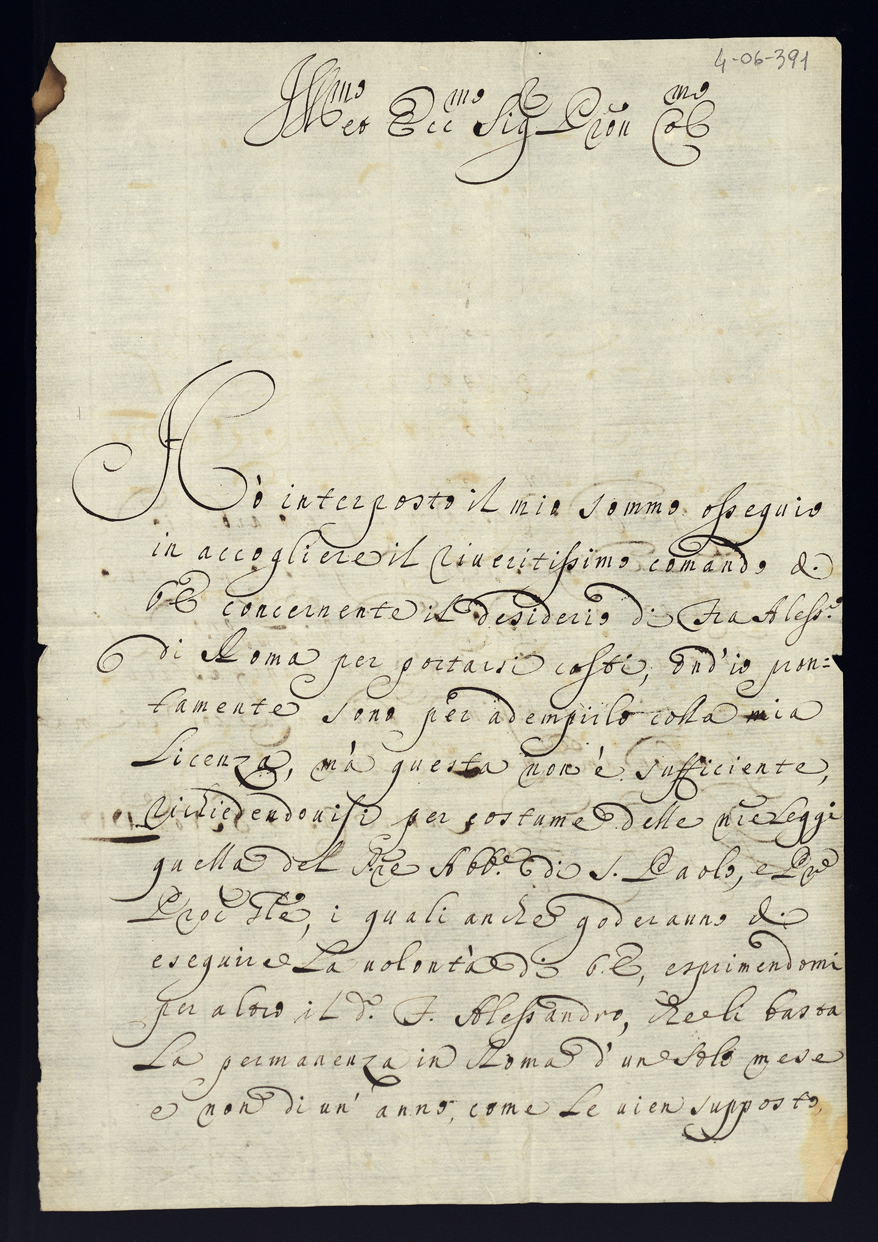 4-06-391
Ill.mo et Ecc.mo Sig.r Pron Col.mo
Hò interposto il mio sommo ossequio
in accogliere il riveritissimo comando di
V.E. concernente il desiderio di Fra Aless.o
di Roma per portarsi costì, ond'io pron=
tamente sono per adempirlo colla mia
Licenza, mà questa non è sufficiente,
richiedendovisi per costume delle nře Leggi
quella del Přε Abb.e di S. Paolo, e P.re
Proc Gle, i quali anche goderanno di
eseguire La volontà di V.E, esprimendomi
per altro il d.o F. Alessandro, che li basta
La permanenza in Roma d'un solo mese
e non di un' anno, come Le vien supposto,